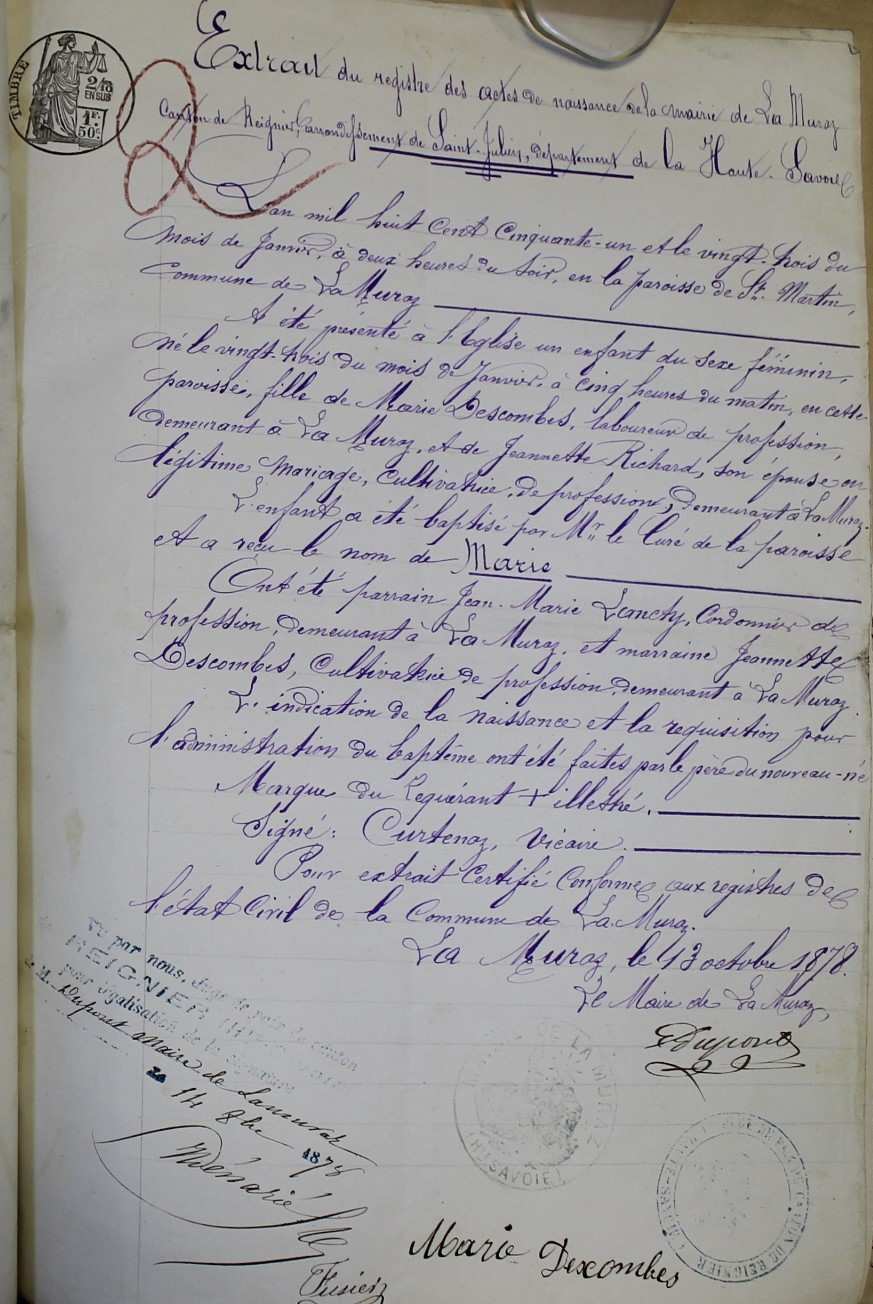 TIMBRE
2/10
EN SUS
1F.
50c
Extrait du registre des actes de naissance de la mairie de La Muraz
Canton de Reignier, arrondissement de Saint-Julien, département de la Haute-Savoie
L'an mil huit cent cinquante-un et le vingt-trois du
mois de Janvier, à deux heures du soir, en la paroisse de St. Martin,
commune de La Muraz
A été présenté à l'Eglise un enfant du sexe féminin,
né le vingt-trois du mois de Janvier, à cinq heures du matin, en cette
paroisse, fille de Marie Descombes, laboureur de profession,
demeurant à La Muraz, et de Jeannette Richard, son épouse en
légitime mariage, cultivatrice, de profession, demeurant à La Muraz.
L'enfant a été baptisé par Mr. le Curé de la paroisse
et a reçu le nom de Marie
Ont été parrain Jean-Marie Lanchy, Cordonnier de
profession, demeurant à La Muraz, et marraine Jeannette
Descombes, cultivatrice de profession, demeurant à La Muraz.
L'indication de la naissance et la requisition pour
l'administration du baptême ont été faites par le père du nouveau-né
Marque du Requérant + illettré.
Signé: Curtenaz, Vicaire.
Pour extrait certifié conforme aux registres de
l'état civil de la commune de La Muraz.
La Muraz, le 13 octobre 1878.
Le Maire de La Muraz,
Dupont
Vu par nous, Juge de paix du canton
REIGNIER
pour légalisation de la signature
de M. Dupont maire de Lamuraz
14 8bre 1878
MAIRIE DE LA MURAZ
(HTE SAVOIE)
JUGE DE PAIX DU CANTON DE REIGNIER (HAUTE-SAVOIE)
Marie Dexcombes